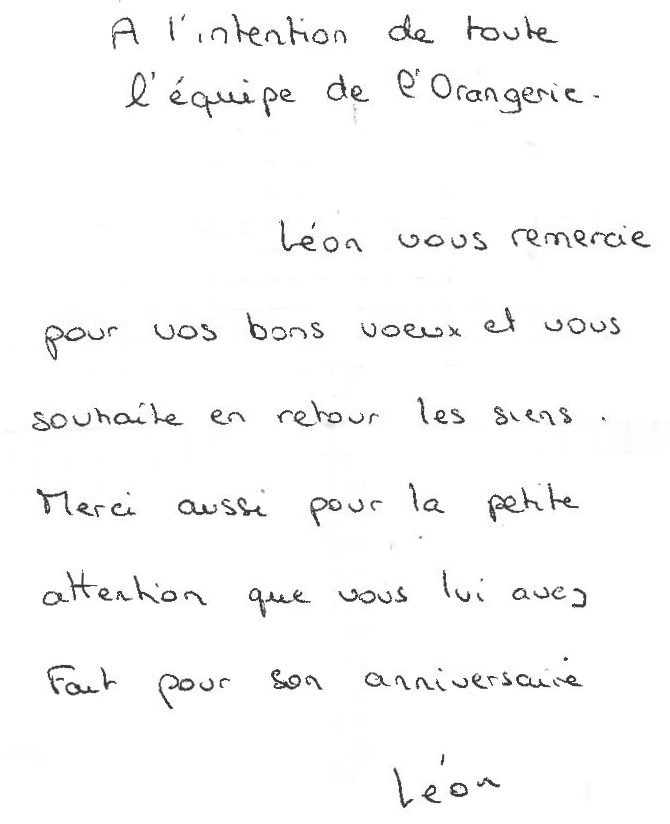 A l'intention de toute
l'équipe de l'Orangerie.
Léon vous remercie
pour vos bons voeux et vous
souhaite en retour les siens.
Merci aussi pour la petite
attention que vous lui avez
Fait pour son anniversaire
Léon